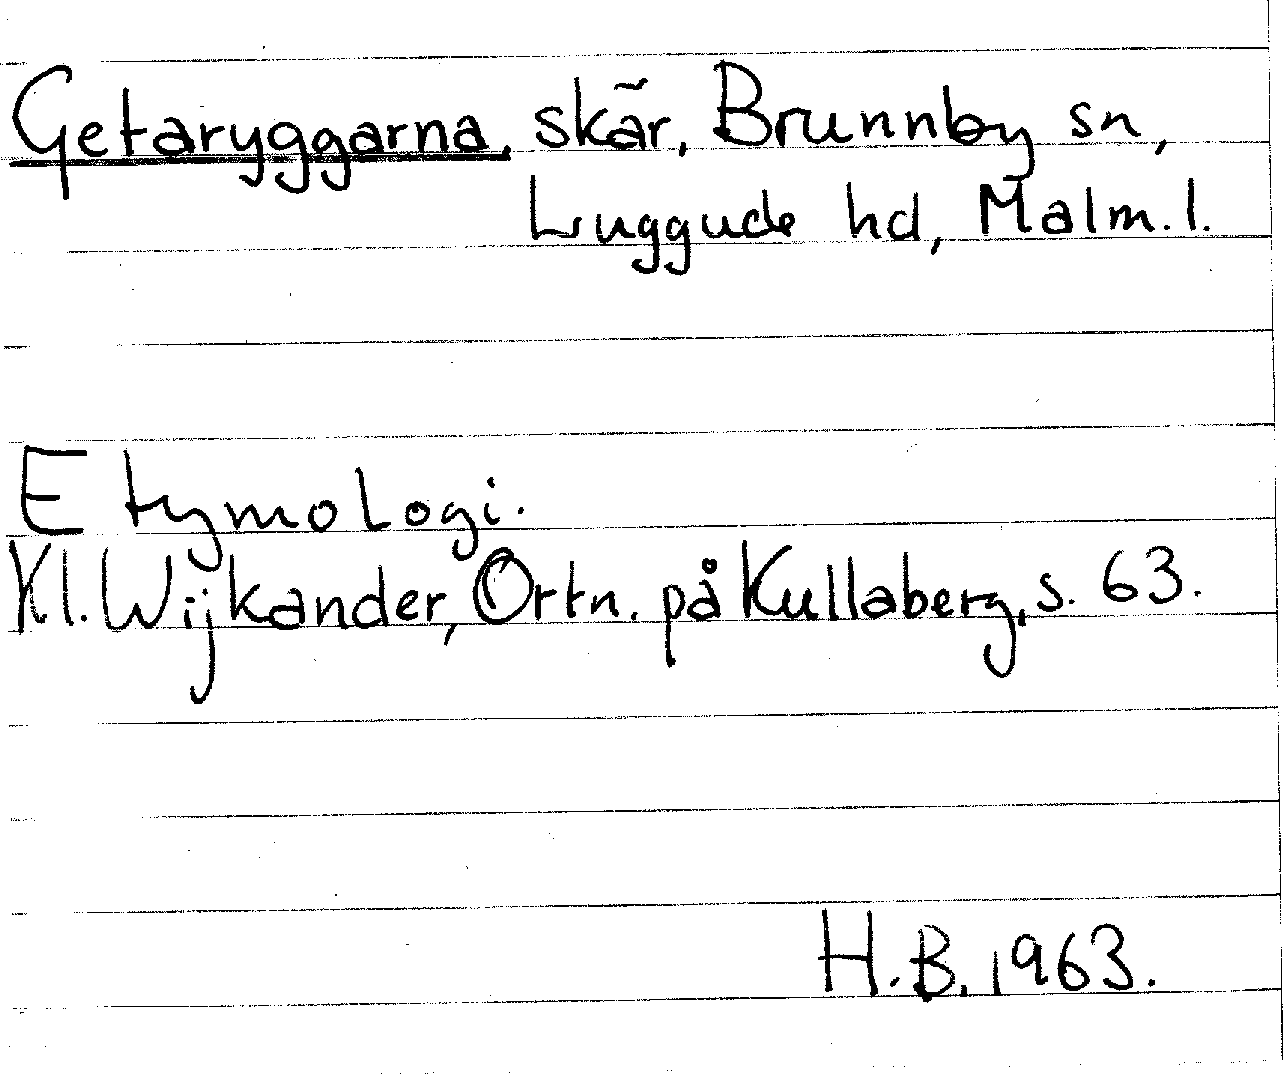 Getaryggarna, skär, Brunnby sn,
Luggude hd, Malm. l.
Etymologi.
Kl. Wijkander, Ortn. på Kullaberg, s. 63.
H.B. 1963.